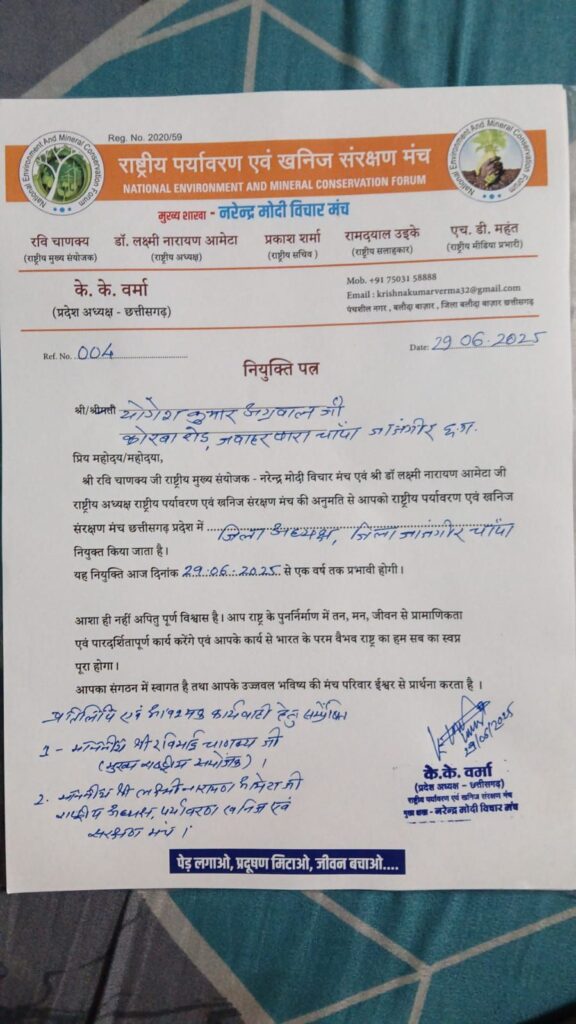 Reg. No. 2020/59
National Environment And Mineral Conservation Forum
National Environment And Mineral Conservation Forum
राष्ट्रीय पर्यावरण एवं खनिज संरक्षण मंच
NATIONAL ENVIRONMENT AND MINERAL CONSERVATION FORUM
मुख्य शाखा - नरेन्द्र मोदी विचार मंच
रवि चाणक्य डॉ. लक्ष्मी नारायण आमेटा प्रकाश शर्मा रामदयाल उइके एच. डी. महंत
(राष्ट्रीय मुख्य संयोजक) (राष्ट्रीय अध्यक्ष) (राष्ट्रीय सचिव) (राष्ट्रीय सलाहकार) (राष्ट्रीय मीडिया प्रभारी)
के. के. वर्मा
(प्रदेश अध्यक्ष - छत्तीसगढ़)
Mob. +91 75031 58888
Email : krishnakumarverma32@gmail.com
पंचशील नगर , बलौदा बाज़ार , जिला बलौदा बाज़ार छत्तीसगढ़
Ref. No. 004 Date: 29.06.2025
नियुक्ति पत्र
श्री/श्रीमती योगेश कुमार अग्रवाल जी
कोरबा रोड, जवाहर पारा चाँपा जांजगीर छ.ग.
प्रिय महोदय/महोदया,
श्री रवि चाणक्य जी राष्ट्रीय मुख्य संयोजक - नरेन्द्र मोदी विचार मंच एवं श्री डॉ लक्ष्मी नारायण आमेटा जी
राष्ट्रीय अध्यक्ष राष्ट्रीय पर्यावरण एवं खनिज संरक्षण मंच की अनुमति से आपको राष्ट्रीय पर्यावरण एवं खनिज
संरक्षण मंच छत्तीसगढ़ प्रदेश में जिला अध्यक्ष, जिला जांजगीर चाँपा
नियुक्त किया जाता है।
यह नियुक्ति आज दिनांक 29.06.2025 से एक वर्ष तक प्रभावी होगी।
आशा ही नहीं अपितु पूर्ण विश्वास है। आप राष्ट्र के पुनर्निर्माण में तन, मन, जीवन से प्रामाणिकता
एवं पारदर्शितापूर्ण कार्य करेंगे एवं आपके कार्य से भारत के परम वैभव राष्ट्र का हम सब का स्वप्न
पूरा होगा।
आपका संगठन में स्वागत है तथा आपके उज्जवल भविष्य की मंच परिवार ईश्वर से प्रार्थना करता है ।
प्रतिलिपि एवं आवश्यक कार्यवाही हेतु सम्प्रेषित
1 - माननीय श्री रविभाई चाणक्य जी
(मुख्य राष्ट्रीय संयोजक) ।
2. माननीय श्री लक्ष्मीनारायण आमेटा जी
राष्ट्रीय अध्यक्ष, पर्यावरण खनिज एवं
संरक्षण मंच ।
29/06/2025
के.के. वर्मा
(प्रदेश अध्यक्ष - छत्तीसगढ़)
राष्ट्रीय पर्यावरण एवं खनिज संरक्षण मंच
मुख्य शाखा - नरेन्द्र मोदी विचार मंच
पेड़ लगाओ, प्रदूषण मिटाओ, जीवन बचाओ....